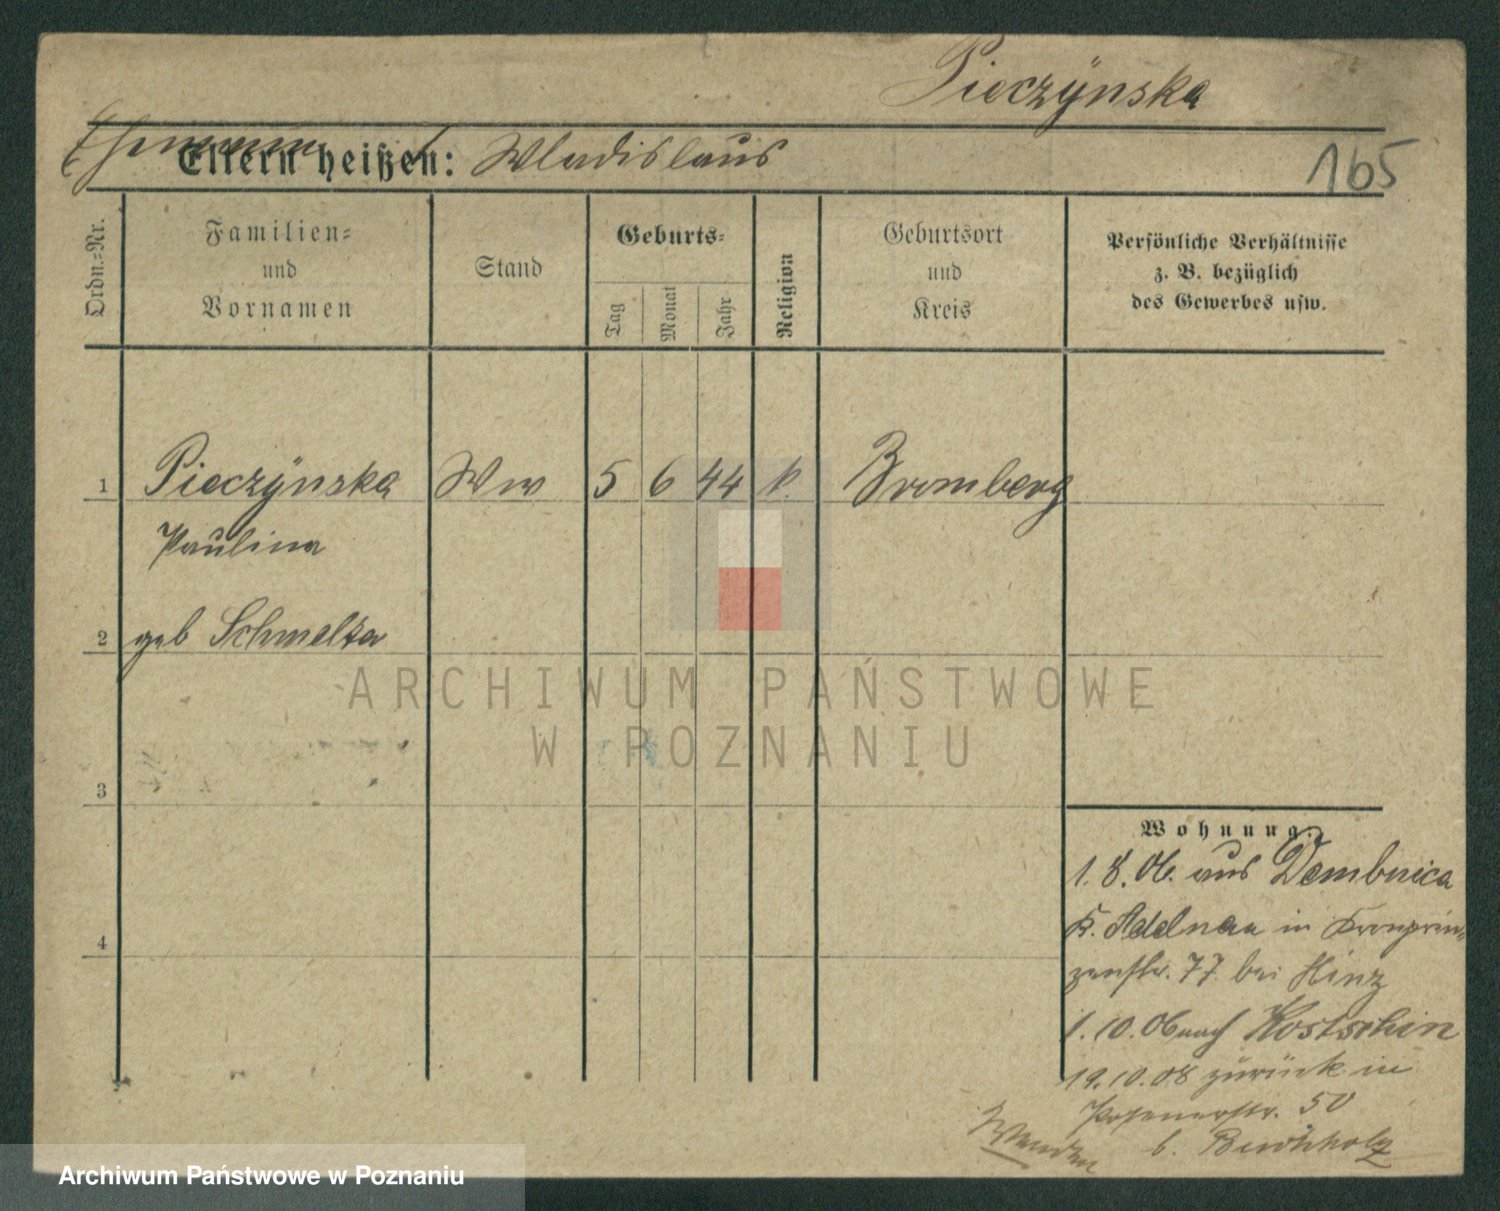 Pieczÿnska
Ehemann
Eltern heißen: Wladislaus
165
Ordn.=Nr.
Familien=
und
Vornamen
Stand
Geburts=
Tag
Monat
Jahr
Religion
Geburtsort
und
Kreis
Persönliche Verhältnisse
z. B. bezüglich
des Gewerbes usw.
1 Pieczÿnska Ww 5 6 44 k. Bromberg
Paulina
2 geb Schmelka
ARCHIWUM PAŃSTWOWE
W POZNANIU
3
4
Wohnung.
1. 8. 06. aus Dembnica
K. Adelnau in Kronprin=
zenstr. 77 bei Hinz
1. 10. 06 nach Kostschin
19. 10. 08 zurück in
Posenerstr. 50
b. Buchholz
Wenden
Archiwum Państwowe w Poznaniu